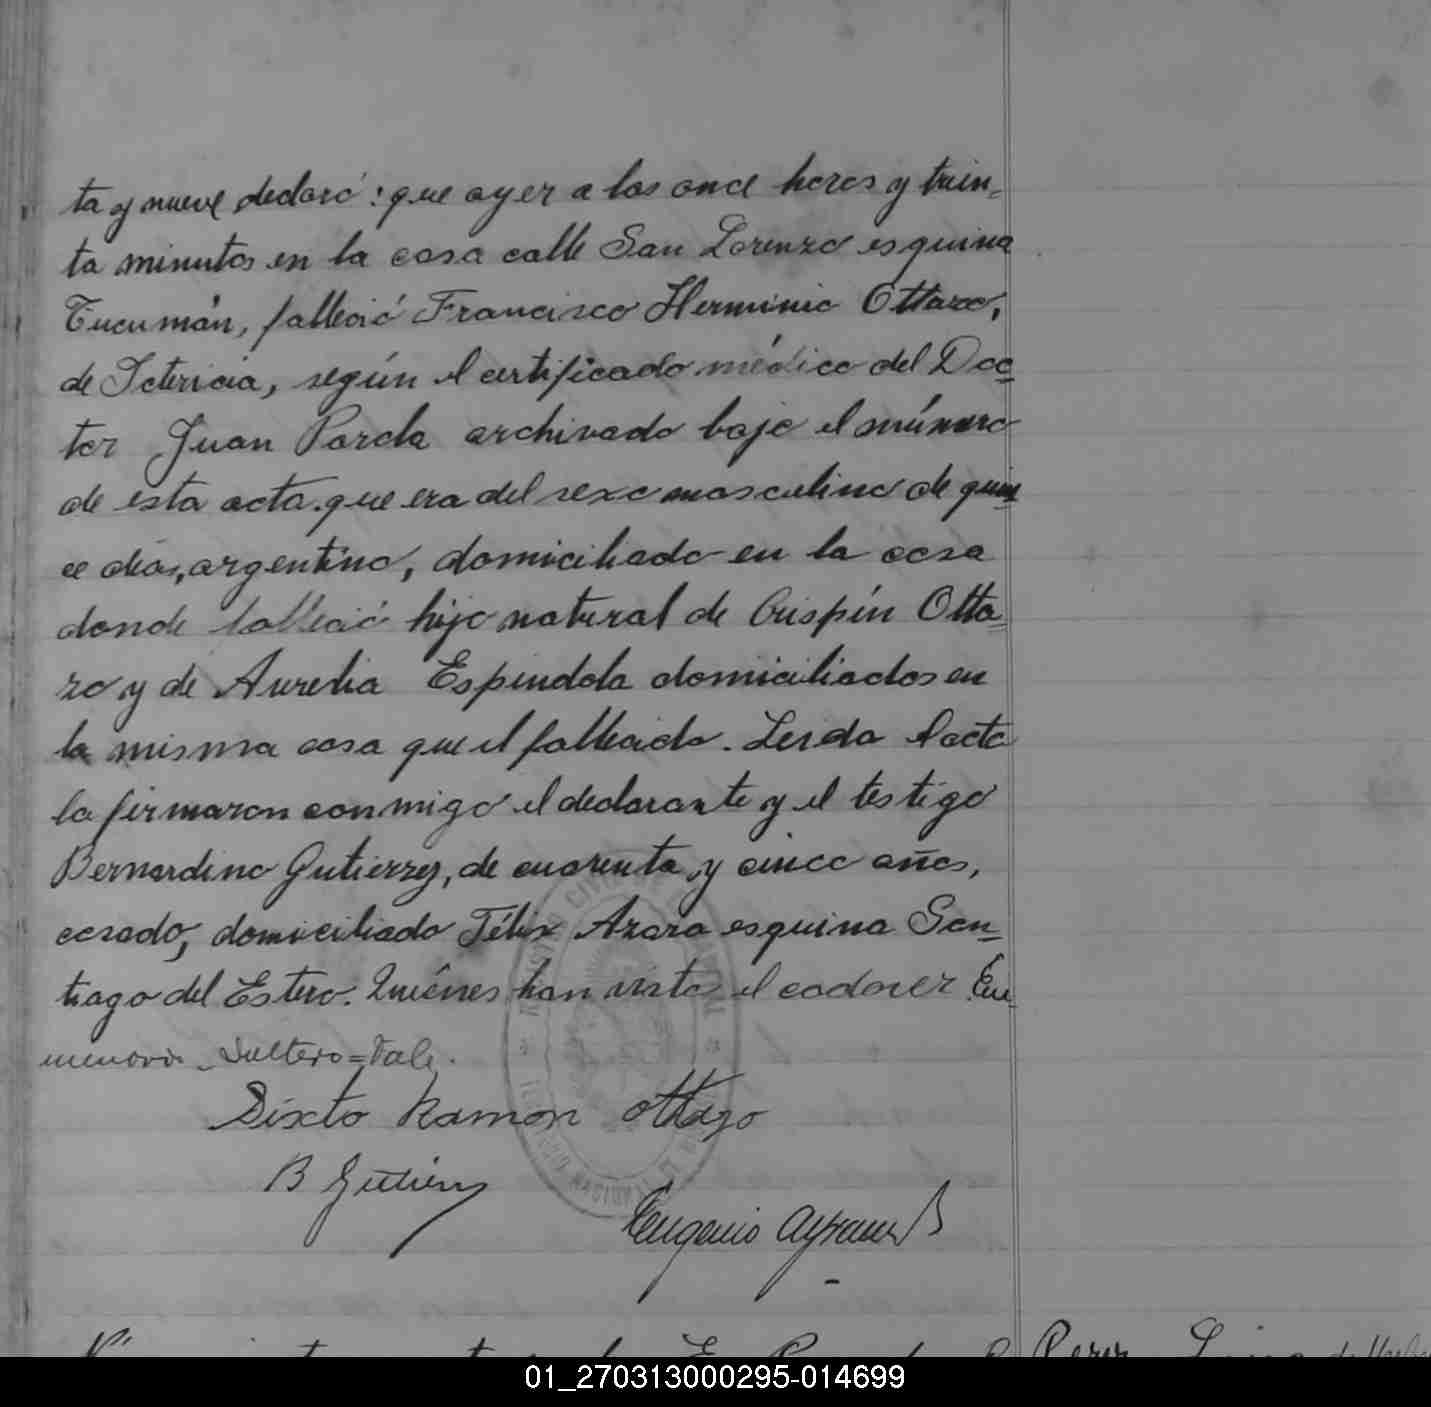 ta y nueve declaró: que ayer a las once horas y trein=
ta minutos en la casa calle San Lorenzo esquina
Tucumán, falleció Francisco Herminio Ottazo,
de Ictericia, según el certificado médico del Doc=
tor Juan Parda archivado bajo el número
de esta acta. que era del sexo masculino de quin=
ce dias, argentino, domiciliado en la casa
donde falleció hijo natural de Crispín Otta=
zo y de Aurelia Espindola domiciliados en
la misma casa que el fallecido. Leida el acta
la firmaron conmigo el declarante y el testigo
Bernardino Gutierrez, de cuarenta y cinco años,
casado, domiciliado Félix Azara esquina San=
tiago del Estero. Quiénes han visto el cadaver En=
Soltero=Vale.
Sixto Ramon Ottazo
B Gutierrez
Eugenio
REGISTRO CIVIL
Perez
01_270313000295-014699